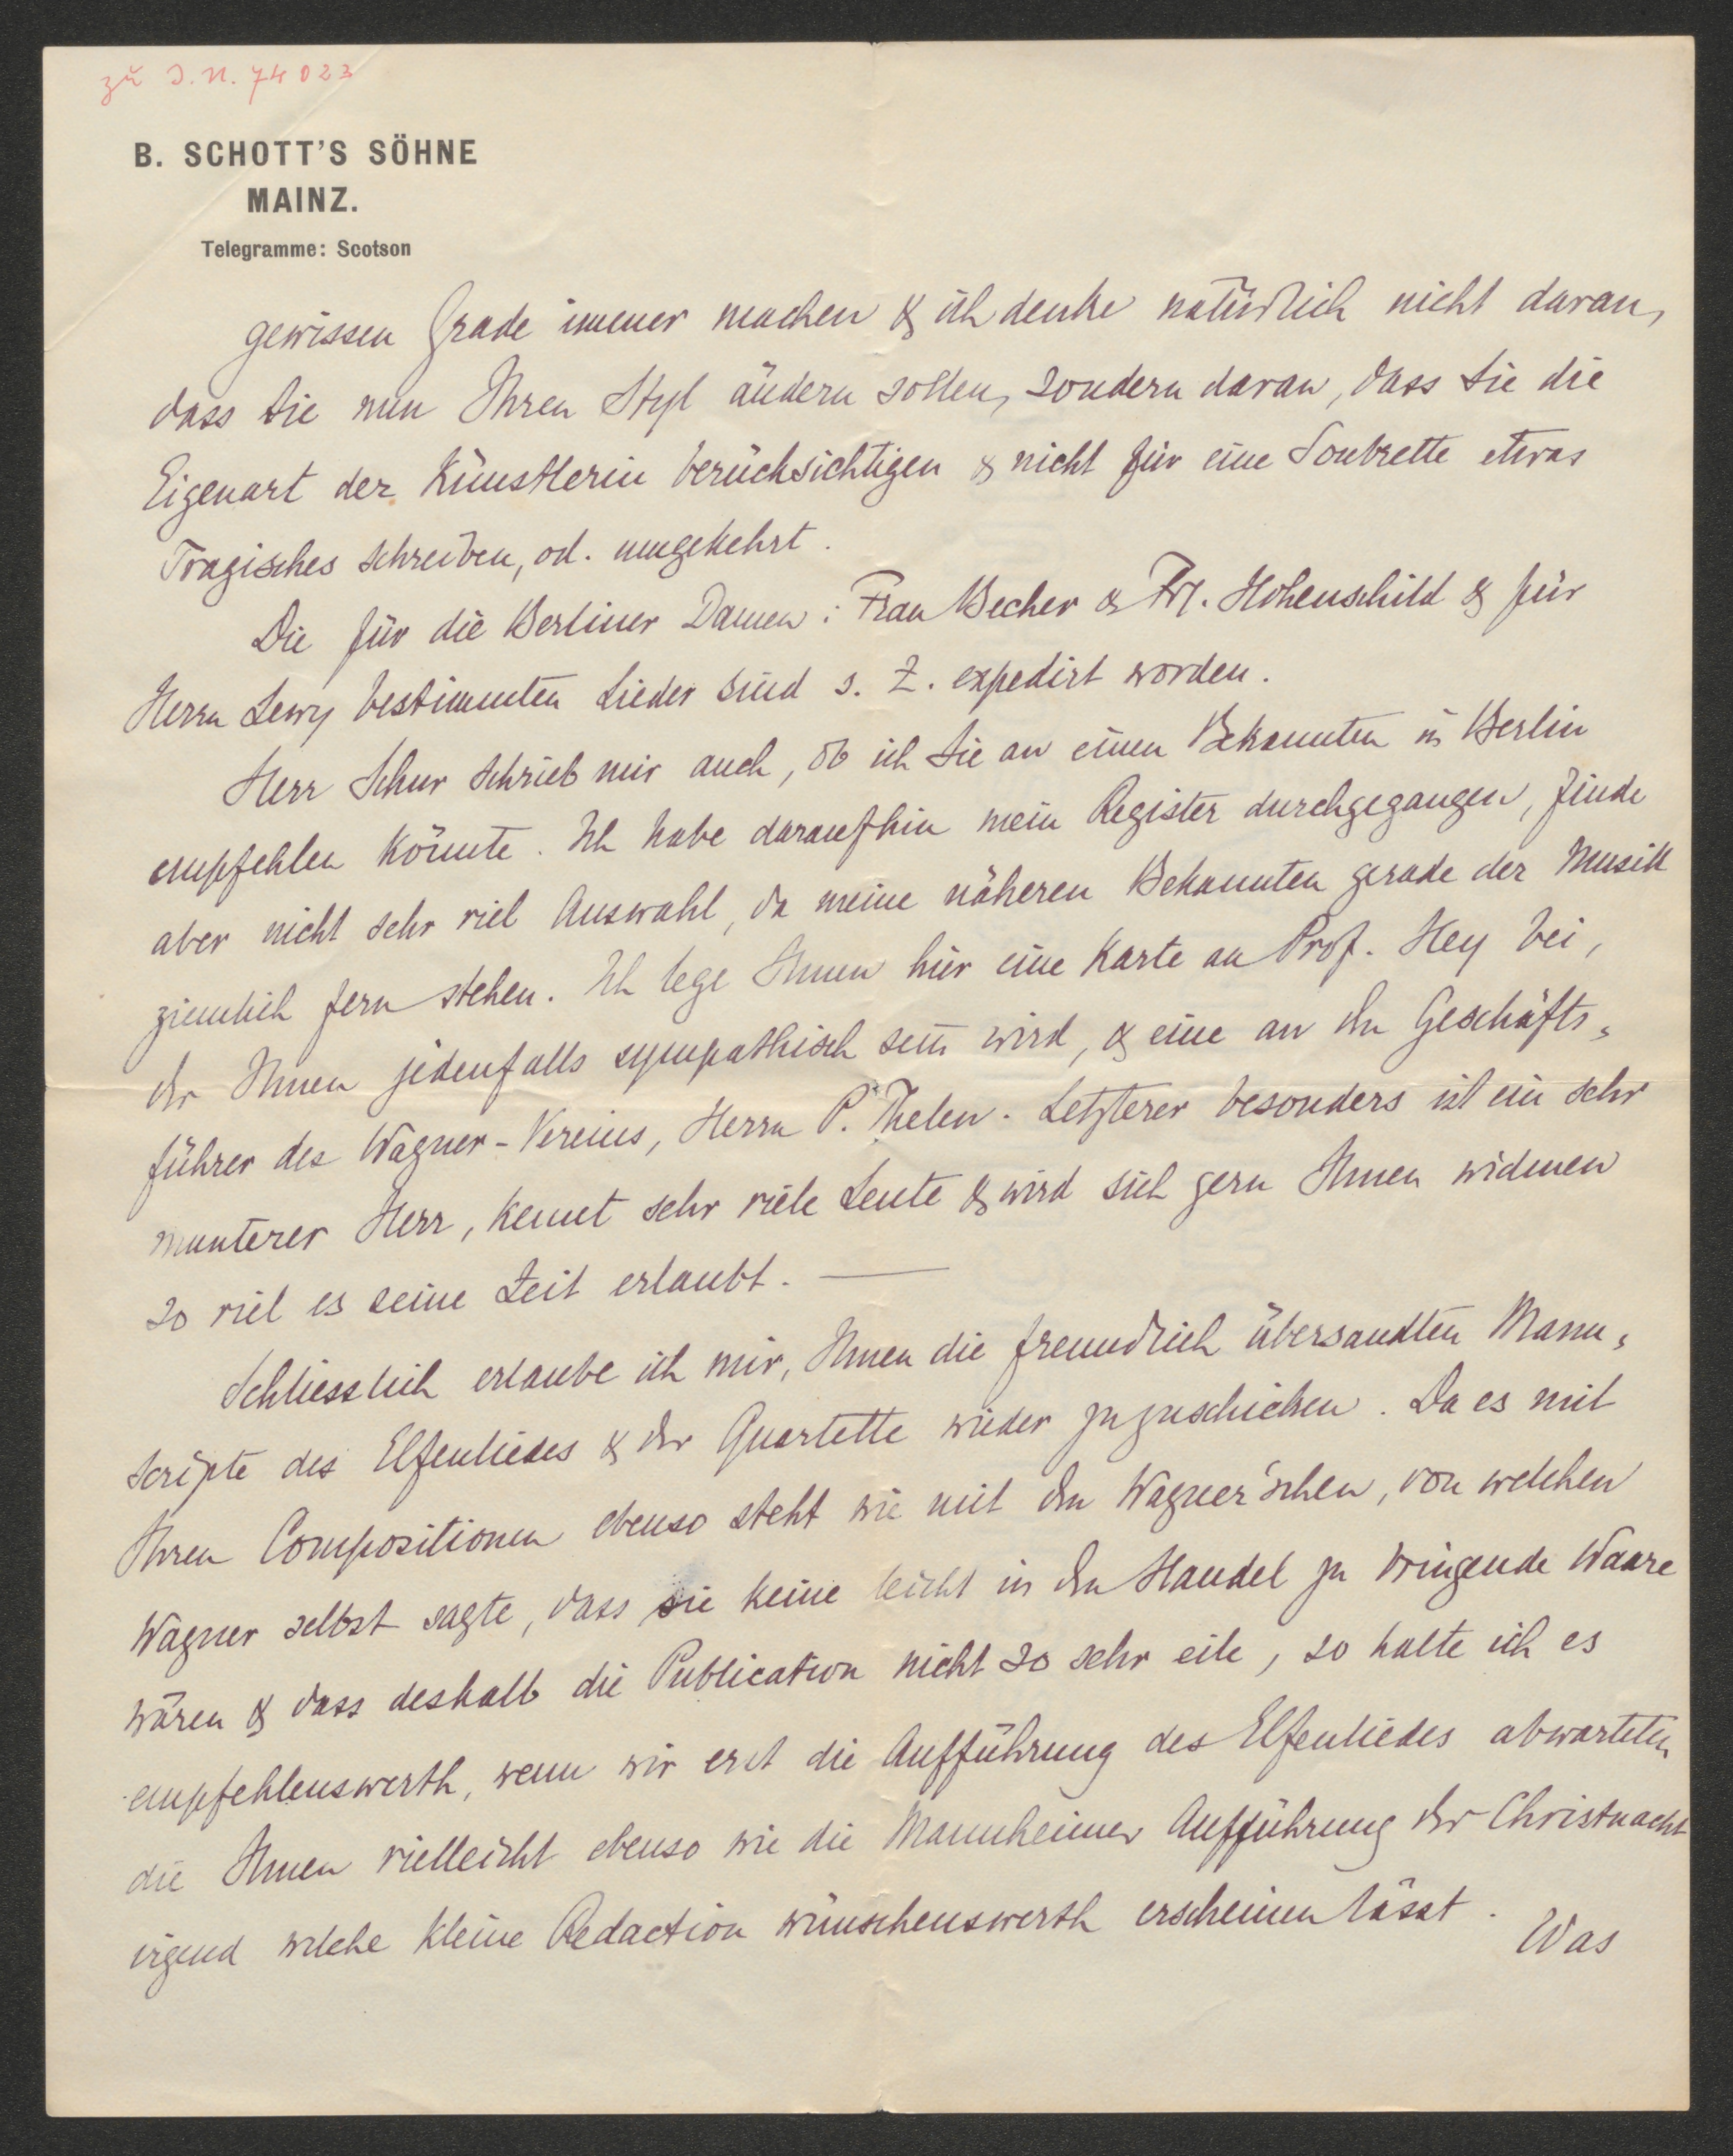 zu I.N. 74023
B. SCHOTT'S SÖHNE
MAINZ.
Telegramme: Scotson
gewissen Grade immer machen & ich denke natürlich nicht daran,
dass Sie nun Ihren Styl ändern sollen, sondern daran, dass Sie die
Eigenart der Künstlerin berücksichtigen & nicht für eine Soubrette etwas
Tragisches schreiben, od. umgekehrt.
Die für die Berliner Damen: Frau Becher & Frl. Hohenschild & für
Herrn Lewy bestimmten Lieder sind s. Z. expedirt worden.
Herr Schur schrieb mir auch, ob ich Sie an einen Bekannten in Berlin
empfehlen könnte. Ich habe daraufhin mein Register durchgegangen, finde
aber nicht sehr viel Auswahl, da meine näheren Bekannten gerade der Musik
ziemlich fern stehen. Ich lege Ihnen hier eine Karte an Prof. Hey bei,
der Ihnen jedenfalls sympathisch sein wird, & eine an den Geschäfts-
führer des Wagner-Vereins, Herrn P. Thelen. Letzterer besonders ist ein sehr
munterer Herr, kennt sehr viele Leute & wird sich gern Ihnen widmen
so viel es seine Zeit erlaubt. —
Schliesslich erlaube ich mir, Ihnen die freundlich übersandten Manu-
scripte des Elfenliedes & der Quartette wieder zuzuschicken. Da es mit
Ihren Compositionen ebenso steht wie mit den Wagner'schen, von welchen
Wagner selbst sagte, dass sie keine leicht in den Handel zu bringende Waare
wären & dass deshalb die Publication nicht so sehr eile, so halte ich es
empfehlenswerth, wenn wir erst die Aufführung des Elfenliedes abwarteten
die Ihnen vielleicht ebenso wie die Mannheimer Aufführung der Christnacht
irgend welche kleine Redaction wünschenswerth erscheinen lässt.
Was